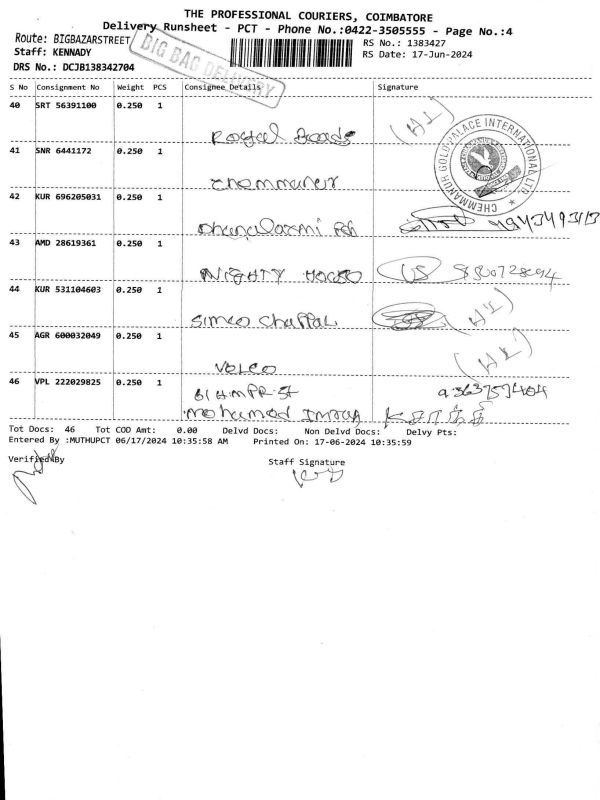 THE PROFESSIONAL COURIERS, COIMBATORE
Delivery Runsheet - PCT - Phone No.:0422-3505555 - Page No.:4
Route: BIGBAZARSTREET
RS No.: 1383427
Staff: KENNADY
RS Date: 17-Jun-2024
DRS No.: DCJB138342704
BIG BAG DELIVERY
S No Consignment No Weight PCS Consignee Details Signature
40 SRT 56391100 0.250 1
Royal
41 SNR 6441172 0.250 1
Chemmanur
CHEMMANUR GOLD PALACE INTERNATIONAL LTD.
42 KUR 696205031 0.250 1
Dhanalaxmi
43 AMD 28619361 0.250 1
NIGHTY
44 KUR 531104603 0.250 1
Simco Chappal
45 AGR 600032049 0.250 1
VOLCO
46 VPL 222029825 0.250 1
mohamod
Tot Docs: 46 Tot COD Amt: 0.00 Delvd Docs: Non Delvd Docs: Delvy Pts:
Entered By :MUTHUPCT 06/17/2024 10:35:58 AM Printed On: 17-06-2024 10:35:59
Verified By Staff Signature